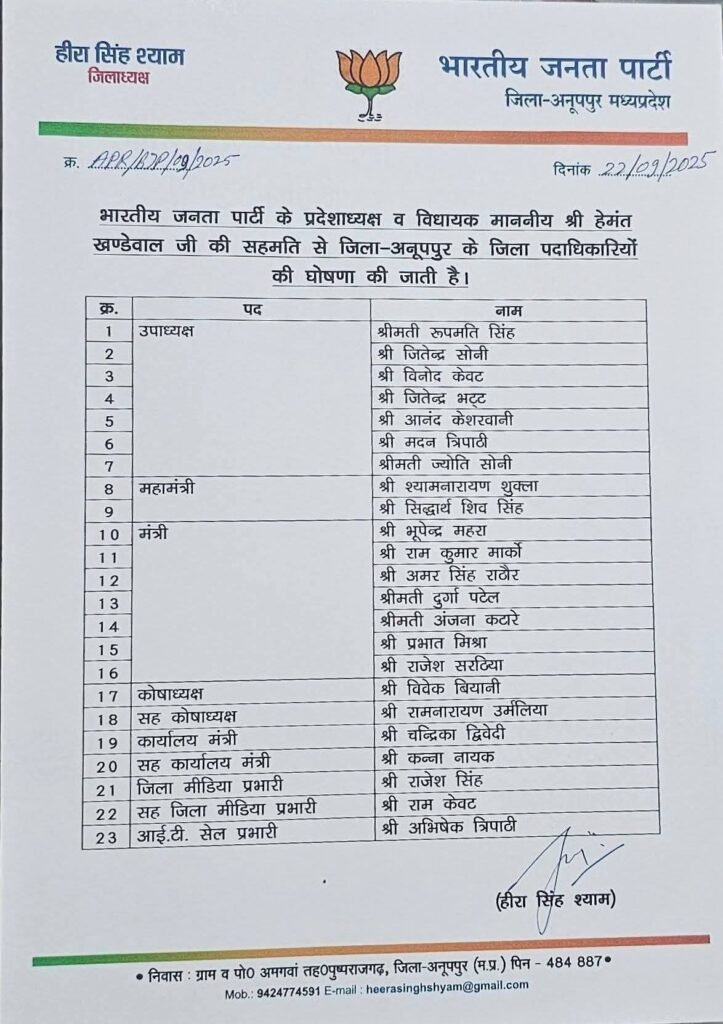 हीरा सिंह श्याम
जिलाध्यक्ष
भारतीय जनता पार्टी
जिला-अनूपपुर मध्यप्रदेश
क्र. APR/BJP/09/2025
दिनांक 22/09/2025
भारतीय जनता पार्टी के प्रदेशाध्यक्ष व विधायक माननीय श्री हेमंत
खण्डेवाल जी की सहमति से जिला-अनूपपुर के जिला पदाधिकारियों
की घोषणा की जाती है।
क्र. पद नाम
1 उपाध्यक्ष श्रीमती रूपमति सिंह
2 श्री जितेन्द्र सोनी
3 श्री विनोद केवट
4 श्री जितेन्द्र भट्ट
5 श्री आनंद केशरवानी
6 श्री मदन त्रिपाठी
7 श्रीमती ज्योति सोनी
8 महामंत्री श्री श्यामनारायण शुक्ला
9 श्री सिद्धार्थ शिव सिंह
10 मंत्री श्री भूपेन्द्र महरा
11 श्री राम कुमार मार्को
12 श्री अमर सिंह राठौर
13 श्रीमती दुर्गा पटेल
14 श्रीमती अंजना कटारे
15 श्री प्रभात मिश्रा
16 श्री राजेश सरठिया
17 कोषाध्यक्ष श्री विवेक बियानी
18 सह कोषाध्यक्ष श्री रामनारायण उर्मलिया
19 कार्यालय मंत्री श्री चन्द्रिका द्विवेदी
20 सह कार्यालय मंत्री श्री कन्ना नायक
21 जिला मीडिया प्रभारी श्री राजेश सिंह
22 सह जिला मीडिया प्रभारी श्री राम केवट
23 आई.टी. सेल प्रभारी श्री अभिषेक त्रिपाठी
(हीरा सिंह श्याम)
• निवास : ग्राम व पो0 अमगवां तह0पुष्पराजगढ़, जिला-अनूपपुर (म.प्र.) पिन - 484 887•
Mob.: 9424774591 E-mail : heerasinghshyam@gmail.com